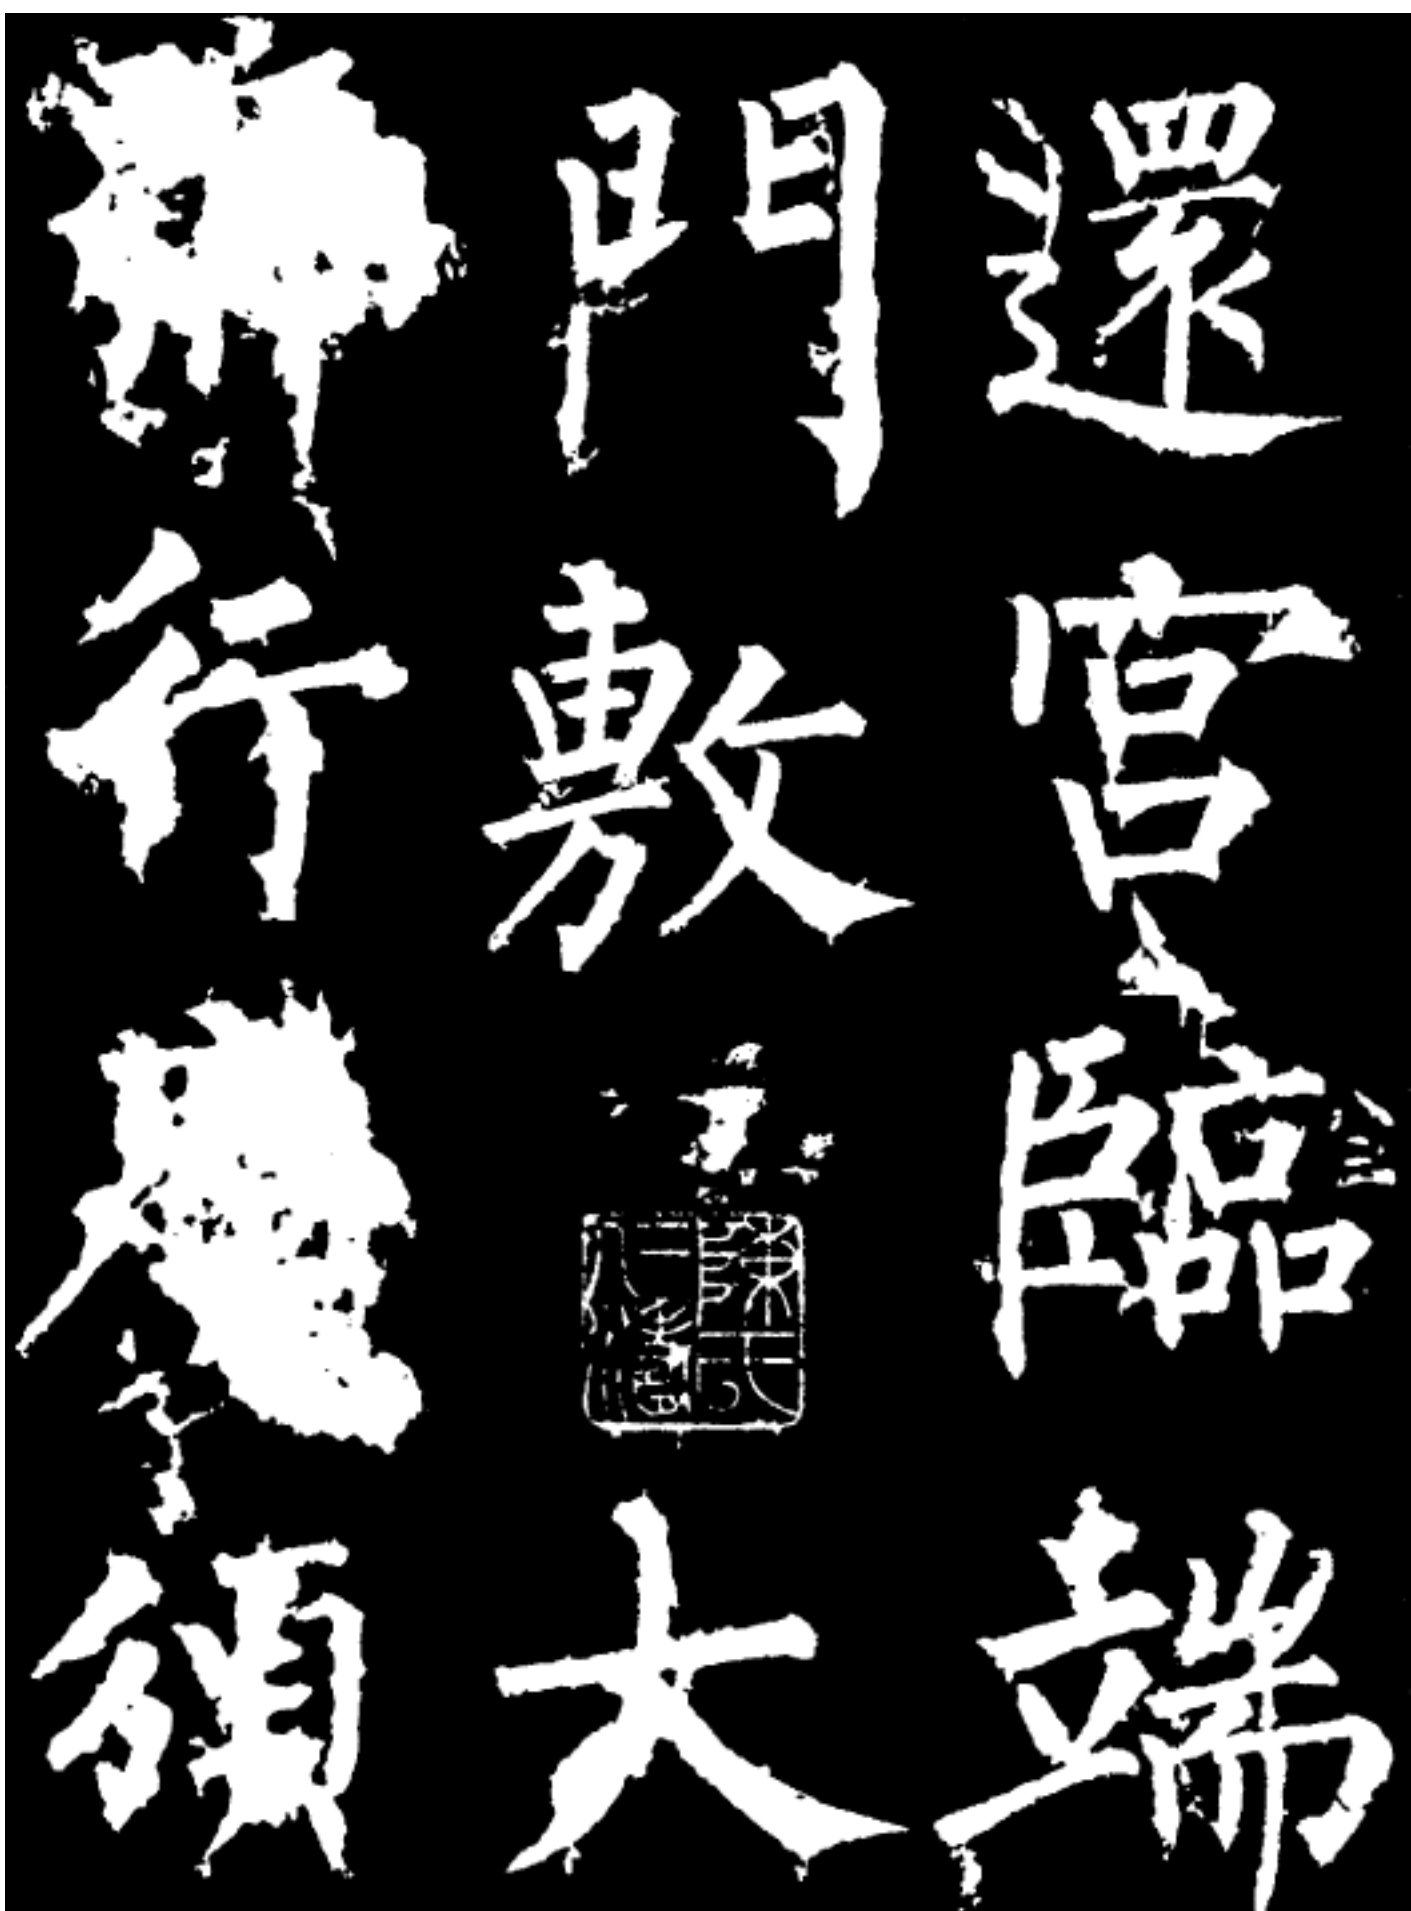 還宮臨端
門敷大
行慶頒